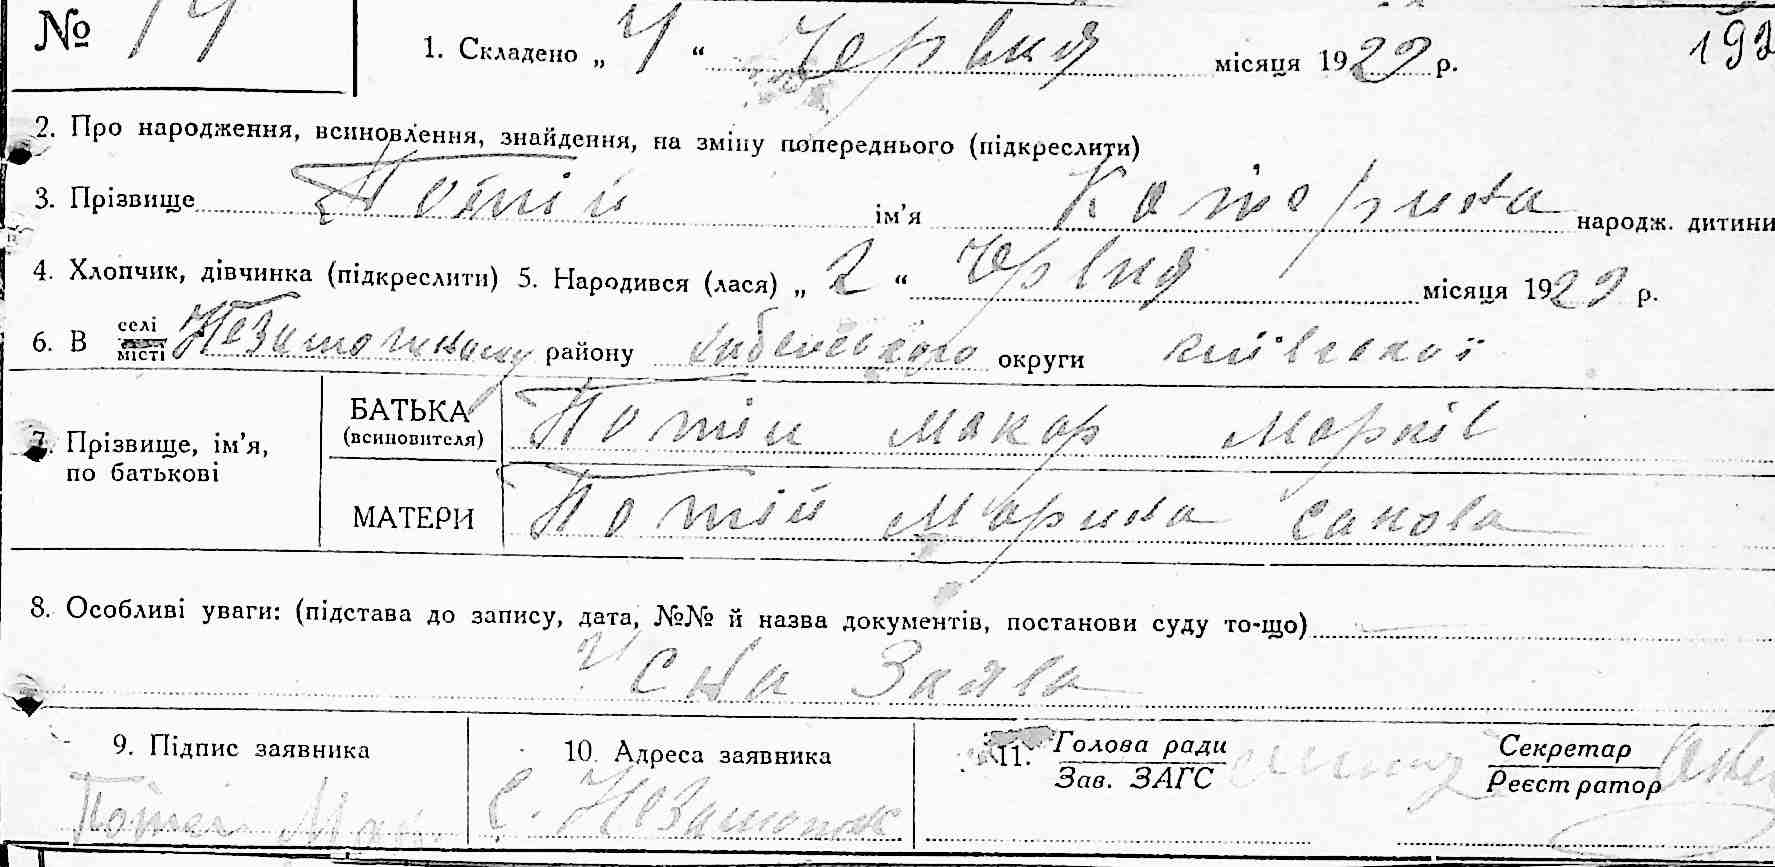 № 14
1. Складено „ 4 “ Червня місяця 1929 р. 192
2. Про народження, всиновлення, знайдення, на зміну попереднього (підкреслити)
3. Прізвище Потій ім’я Катерина народж. дитини
4. Хлопчик, дівчинка (підкреслити) 5. Народився (лася) „ 2 “ Червня місяця 1929 р.
6. В селі місті Незаможному району округи київської
7. Прізвище, ім’я, по батькові
БАТЬКА (всиновителя) Потій Макар Марків
МАТЕРИ Потій Марина Савова
8. Особливі уваги: (підстава до запису, дата, №№ й назва документів, постанови суду то-що)
Усна Заява
9. Підпис заявника 10. Адреса заявника 11. Голова ради Зав. ЗАГС Секретар Реєстратор
Потій Мак с. Незаможн